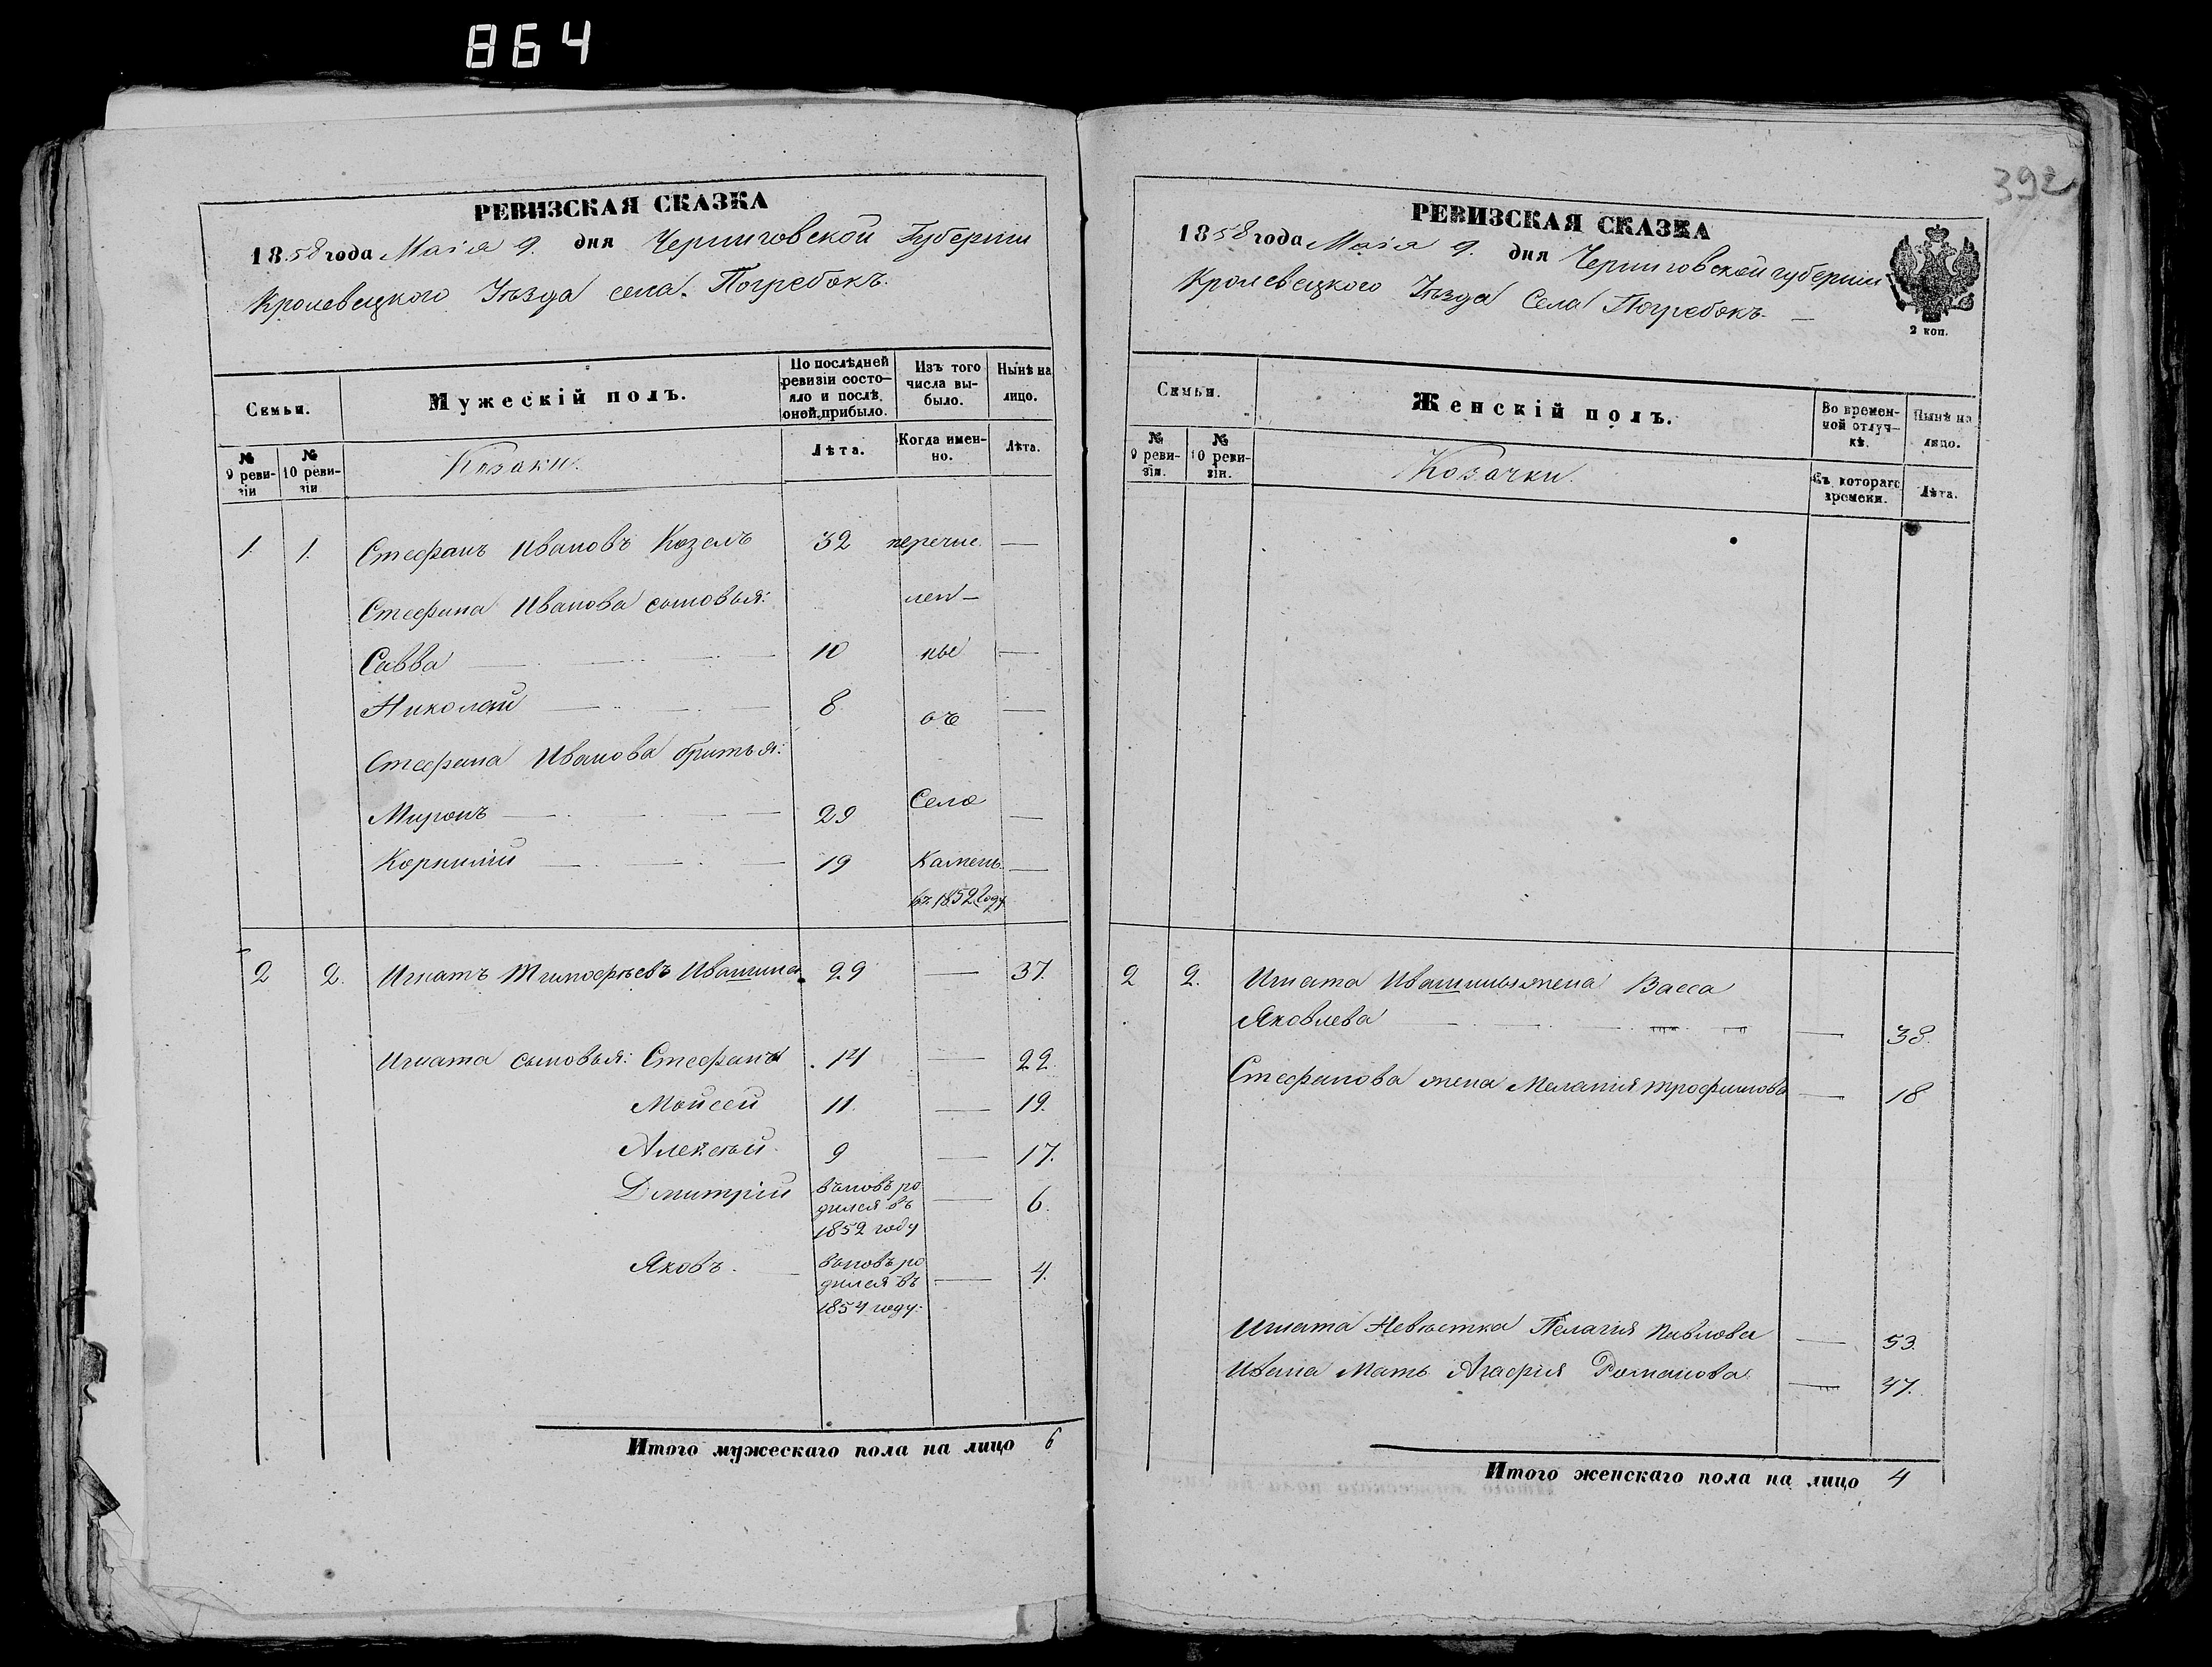 864
РЕВИЗСКАЯ СКАЗКА
1858 года Маія 9. дня Черниговской Губерніи
Кролевецкого Уѣзда села Погребокъ.
Семьи.
Мужескій полъ.
По послѣдней ревизіи состояло и послѣ оной прибыло.
Изъ того числа выбыло.
Нынѣ на лицо.
№ 9 ревизіи
№ 10 ревизіи
Козаки.
Лѣта.
Когда именно.
Лѣта.
1. 1. Стефанъ Ивановъ Козелъ 32 перечис. —
Стефана Иванова сыновья: лен-
Савва — 10 ны —
Николай — 8 въ —
Стефана Иванова братья:
Миронъ — 29 Село —
Корнилій — 19 Камень —
въ 1852 году
2 2. Игнатъ Тимофѣевъ Ивашина 29 — 37.
Игната сыновья: Стефанъ 14 — 22.
Мойсей 11. — 19.
Алексѣй 9 — 17.
Дмитрій вновь ро
дился въ — 6.
1852 году
Яковъ. — вновь ро
дился въ — 4.
1854 году.
Итого мужескаго пола на лицо 6
392
РЕВИЗСКАЯ СКАЗКА
1858 года Маія 9. дня Черниговской губерніи
Кролевецкого Уѣзда Села Погребокъ. —
2 коп.
Семьи.
Женскій полъ.
Во временной отлучкѣ.
Нынѣ на лицо.
№ 9 ревизіи.
№ 10 ревизіи.
Козачки.
Съ котораго времени.
Лѣта.
2 2. Игната Ивашины жена Васса
Яковлева — — 38.
Стефанова жена Меланія Трофимова — 18
Игната Невѣстка Пелагія Павлова — 53.
Ивана Мать Агафія Романова — 47.
Итого женскаго пола на лицо 4